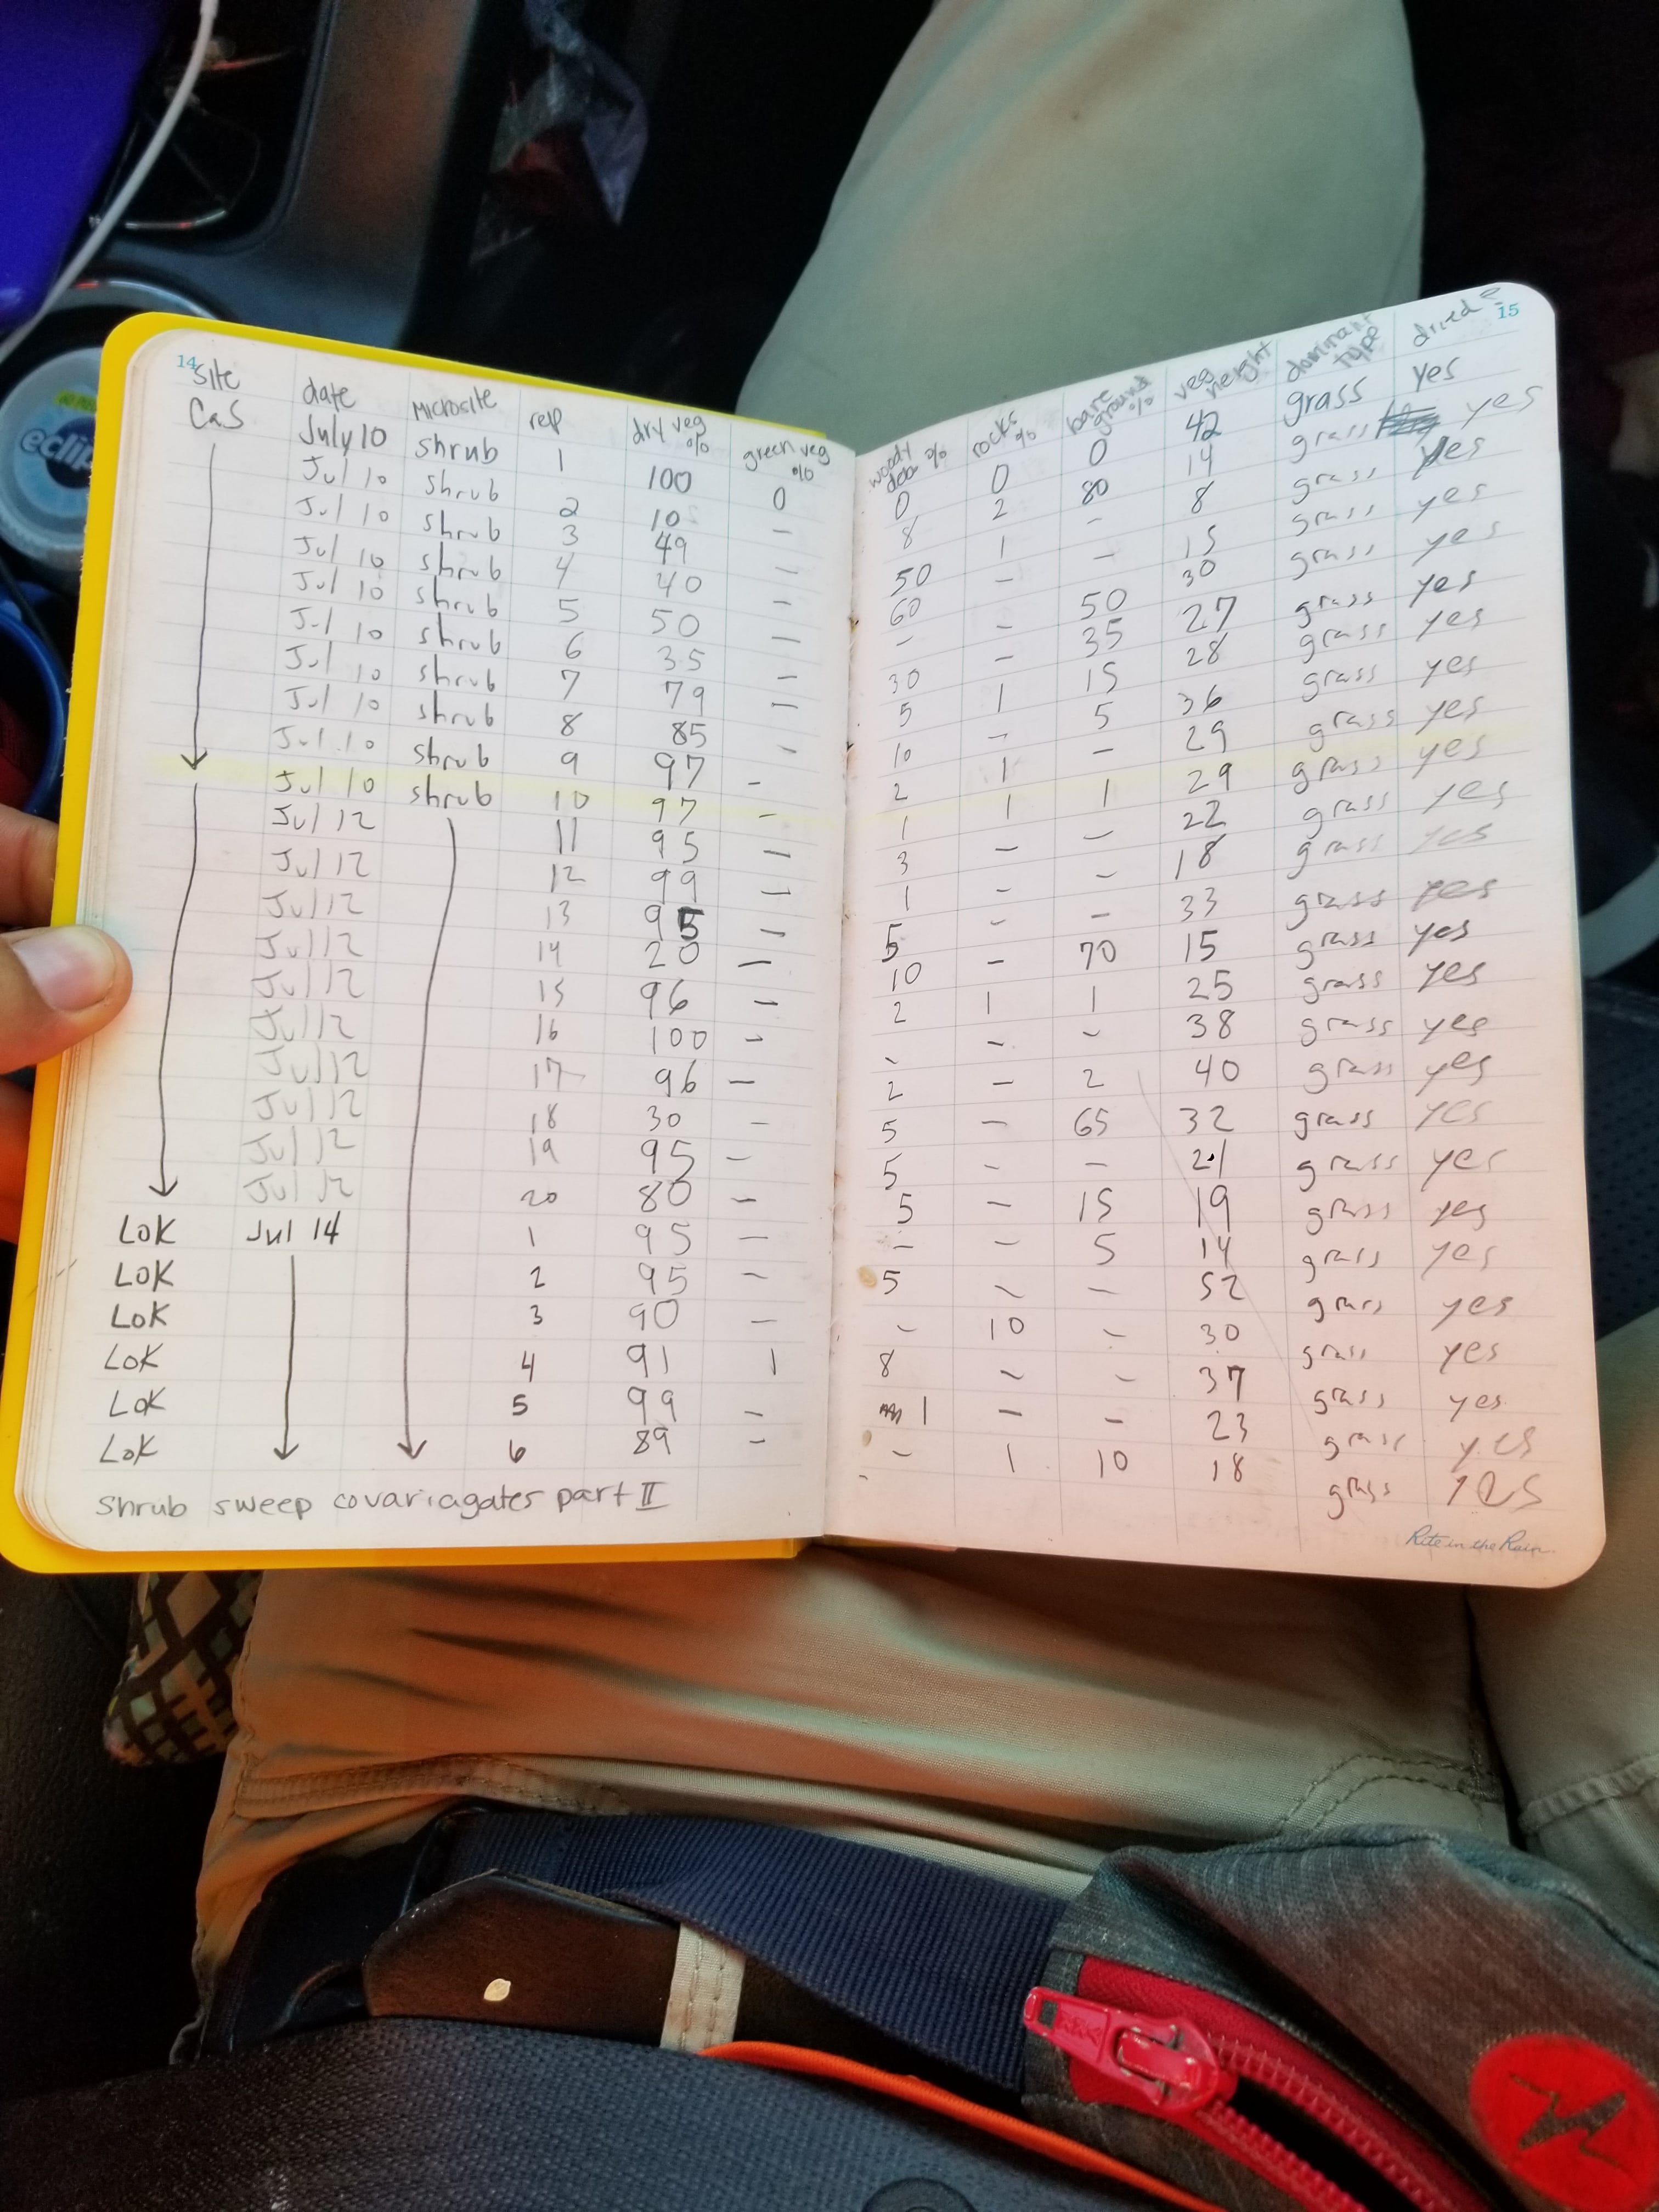 14
site date Microsite rep dry veg % green veg %
CaS July 10 shrub 1 100 0
Jul 10 shrub 2 10 -
Jul 10 shrub 3 49 -
Jul 10 shrub 4 40 -
Jul 10 shrub 5 50 -
Jul 10 shrub 6 35 -
Jul 10 shrub 7 79 -
Jul 10 shrub 8 85 -
Jul 10 shrub 9 97 -
Jul 10 shrub 10 97 -
Jul 12 11 95 -
Jul 12 12 99 -
Jul 12 13 95 -
Jul 12 14 20 -
Jul 12 15 96 -
Jul 12 16 100 -
Jul 12 17 96 -
Jul 12 18 30 -
Jul 12 19 95 -
Jul 12 20 80 -
LoK Jul 14 1 95 -
LoK 2 95 -
LoK 3 90 -
LoK 4 91 1
LoK 5 99 -
LoK 6 89 -
Shrub sweep covariagates part II
15
woody % rocks % bare ground % veg height dominant type dried?
0 0 0 42 grass yes
8 2 80 14 grass yes
50 1 - 8 grass yes
60 - - 15 grass yes
- - 50 30 grass yes
30 - 35 27 grass yes
5 1 15 28 grass yes
10 - 5 36 grass yes
2 1 - 29 grass yes
1 1 1 29 grass yes
3 - - 22 grass yes
1 - - 18 grass yes
5 - - 33 grass yes
10 - 70 15 grass yes
2 1 1 25 grass yes
- - - 38 grass yes
2 - 2 40 grass yes
5 - 65 32 grass yes
5 - - 21 grass yes
5 - 15 19 grass yes
- - 5 14 grass yes
5 - - 52 grass yes
- 10 - 30 grass yes
8 - - 37 grass yes
1 - - 23 grass yes
- 1 10 18 grass yes
Rite in the Rain
eclip